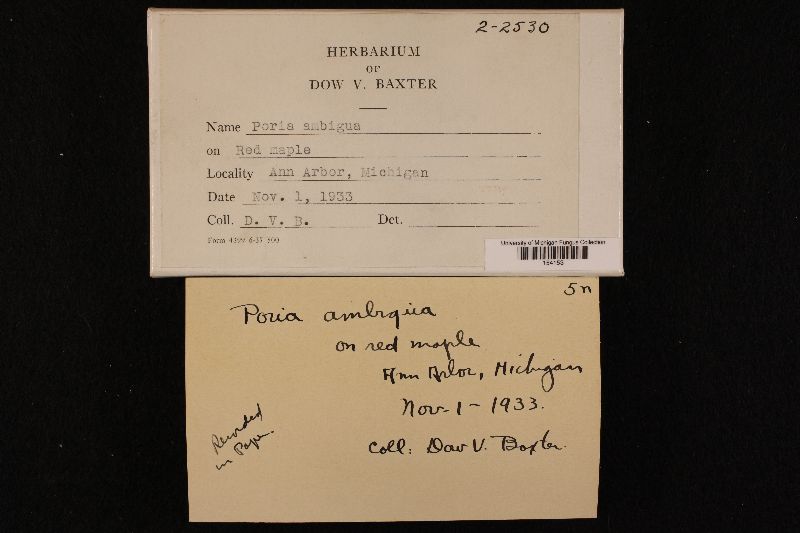 2-2530
HERBARIUM
OF
DOW V. BAXTER
Name Poria ambigua
on Red maple
Locality Ann Arbor, Michigan
Date Nov. 1, 1933
Coll. D. V. B. Det.
Form 4399 6-37 500
University of Michigan Fungus Collection
164153
5n
Poria ambigua
on red maple
Ann Arbor, Michigan
Nov-1-1933.
Coll: Dow V. Baxter.
Recorded
in Paper.